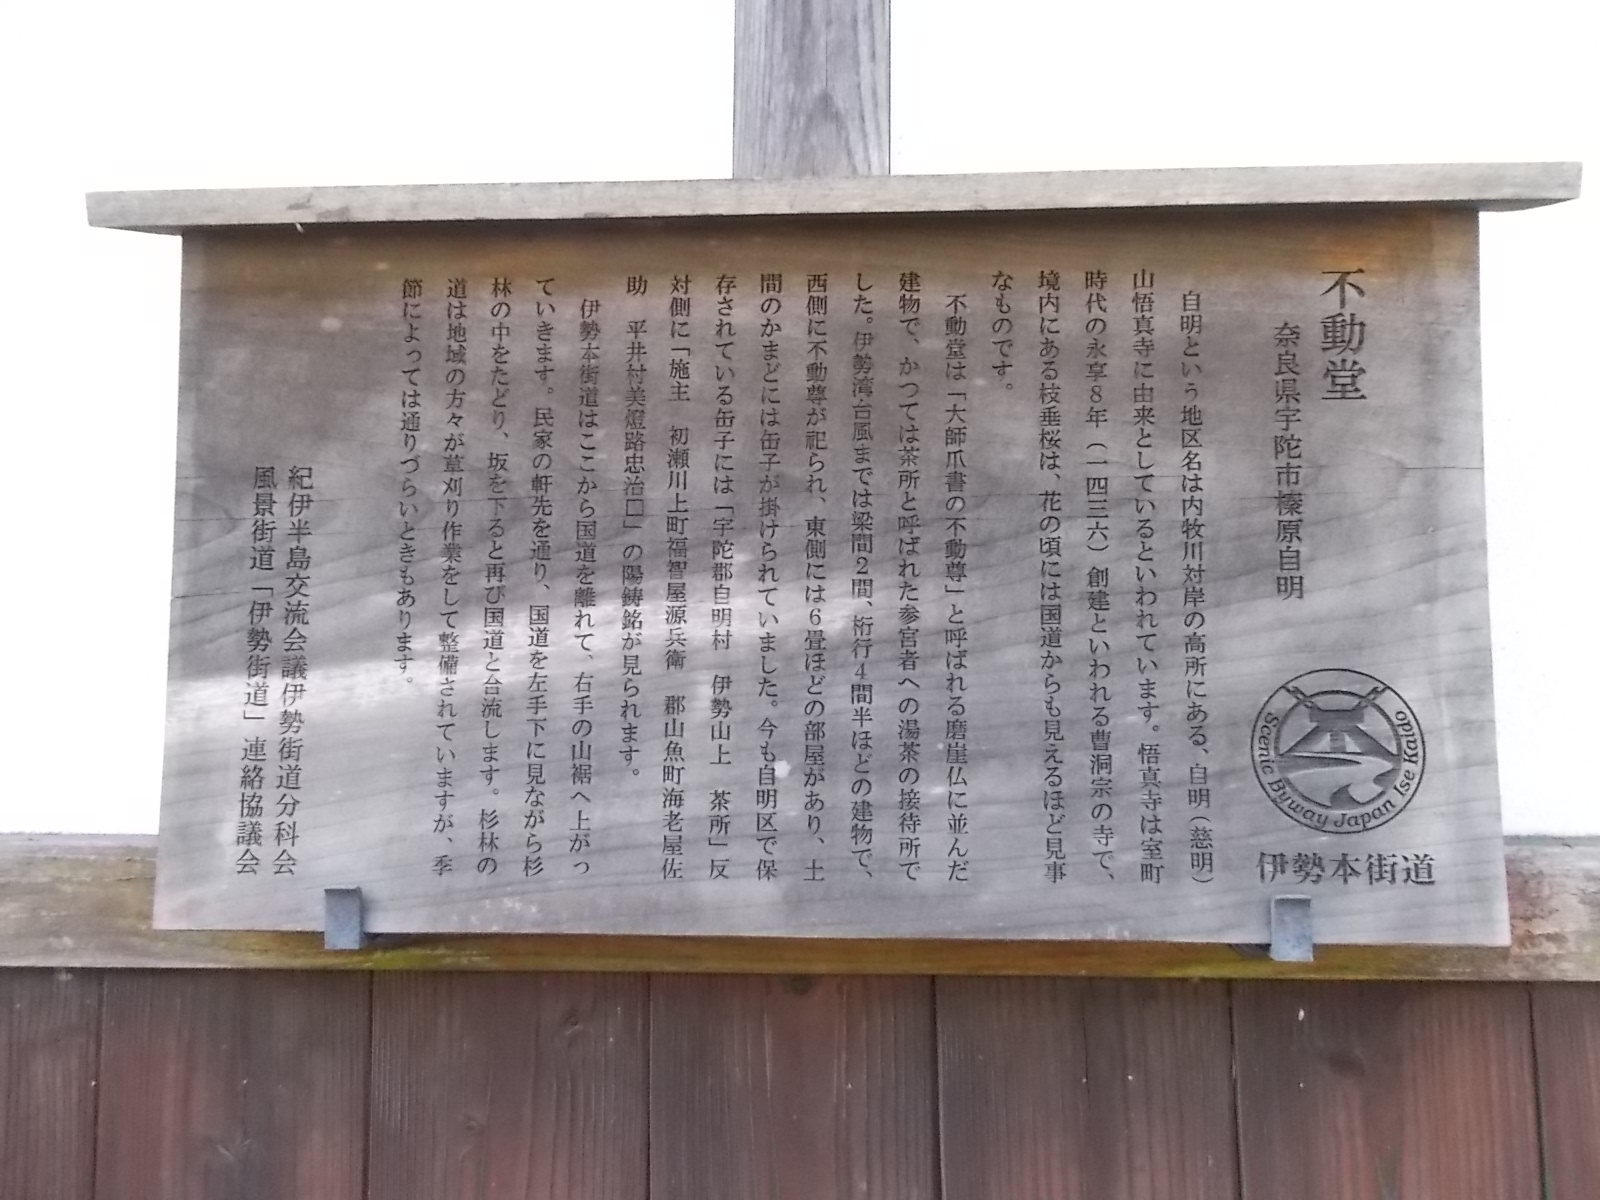 不動堂
奈良県宇陀市榛原自明
自明という地区名は内牧川対岸の高所にある、自明(慈明)
山悟真寺に由来としているといわれています。悟真寺は室町
時代の永享8年(一四三六)創建といわれる曹洞宗の寺で、
境内にある枝垂桜は、花の頃には国道からも見えるほど見事
なものです。
不動堂は「大師爪書の不動尊」と呼ばれる磨崖仏に並んだ
建物で、かつては茶所と呼ばれた参宮者への湯茶の接待所で
した。伊勢湾台風までは梁間2間、桁行4間半ほどの建物で、
西側に不動尊が祀られ、東側には6畳ほどの部屋があり、土
間のかまどには缶子が掛けられていました。今も自明区で保
存されている缶子には「宇陀郡自明村 伊勢山上 茶所」反
対側に「施主 初瀬川上町福智屋源兵衛 郡山魚町海老屋佐
助 平井村美燈路忠治□」の陽鋳銘が見られます。
伊勢本街道はここから国道を離れて、右手の山裾へ上がっ
ていきます。民家の軒先を通り、国道を左手下に見ながら杉
林の中をたどり、坂を下ると再び国道と合流します。杉林の
道は地域の方々が草刈り作業をして整備されていますが、季
節によっては通りづらいときもあります。
紀伊半島交流会議伊勢街道分科会
風景街道「伊勢街道」連絡協議会
Scenic Byway Japan Ise Kaido
伊勢本街道